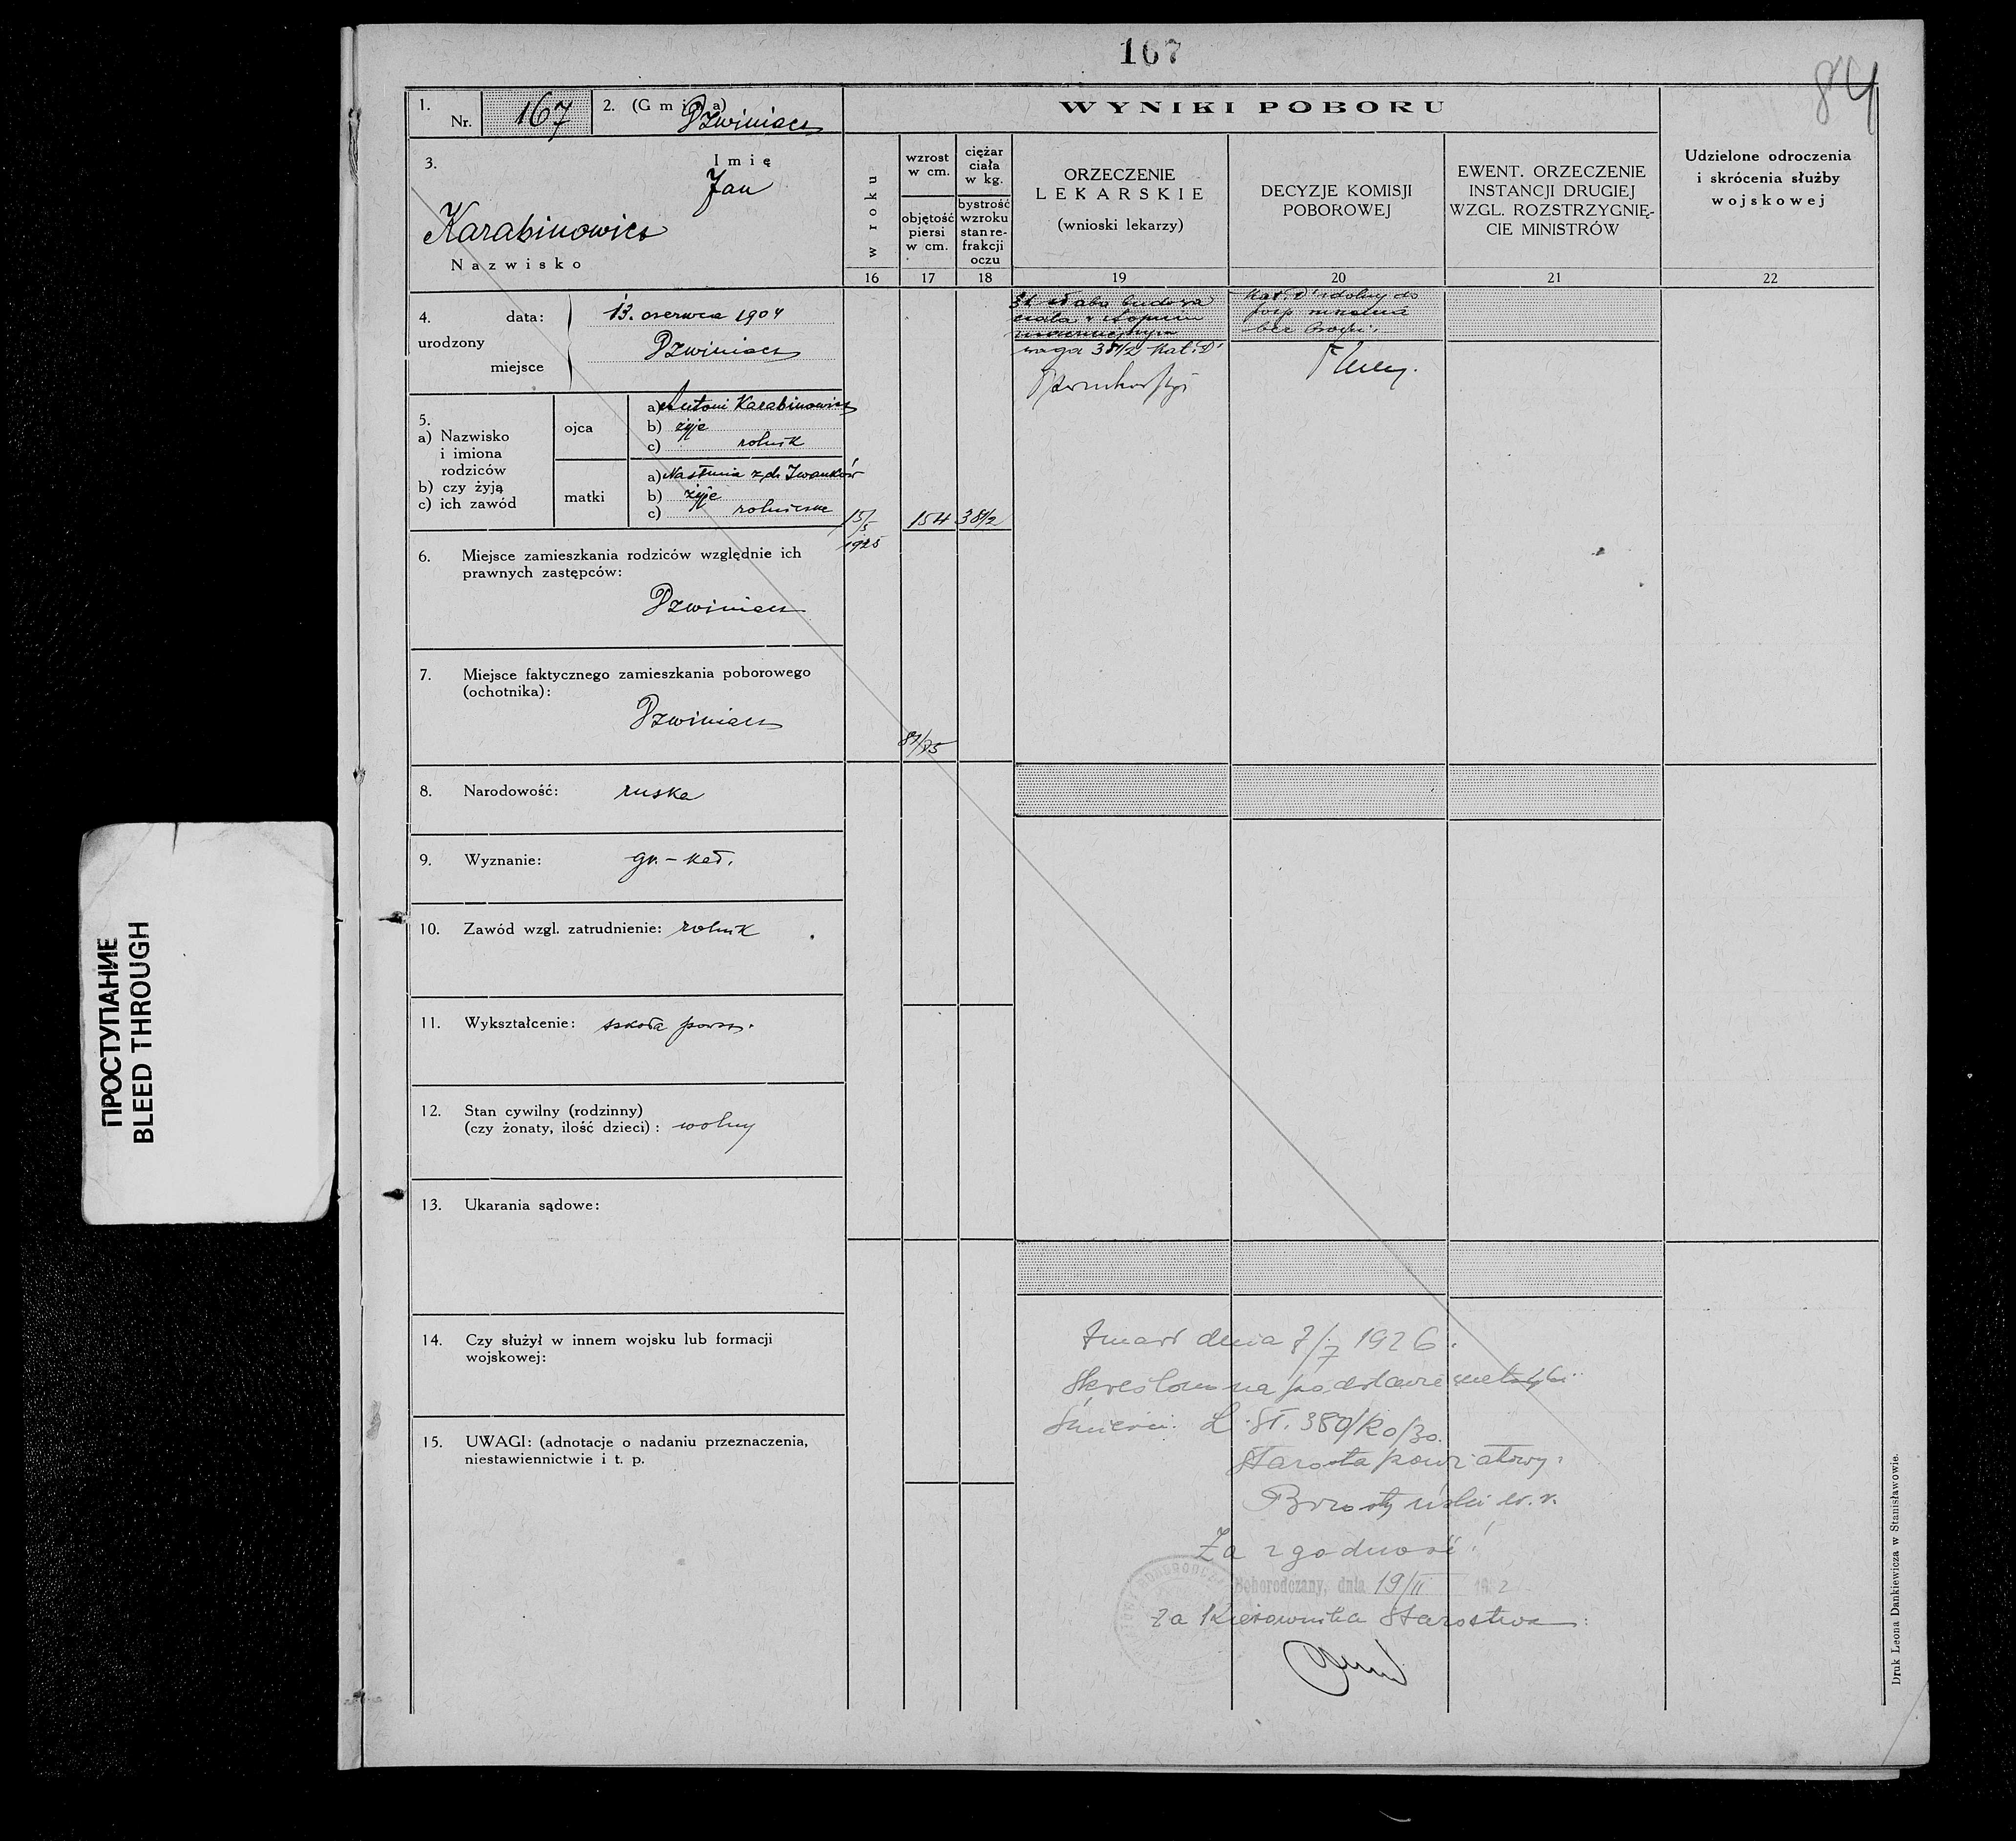 167
84
1. Nr. 167 2. (Gmina) Dzwiniacz
3. Imię
Jan
Karabinowicz
Nazwisko
4. urodzony
data: 13. czerwca 1904
miejsce Dzwiniacz
5.
a) Nazwisko i imiona rodziców
b) czy żyją
c) ich zawód
ojca
a) Antoni Karabinowicz
b) żyje
c) rolnik
matki
a) Nastunia z d. Iwanków
b) żyje
c) rolniczka
6. Miejsce zamieszkania rodziców względnie ich
prawnych zastępców:
Dzwiniacz
7. Miejsce faktycznego zamieszkania poborowego
(ochotnika):
Dzwiniacz
8. Narodowość: ruska
9. Wyznanie: gr.-kat.
10. Zawód wzgl. zatrudnienie: rolnik
11. Wykształcenie: szkoła powsz.
12. Stan cywilny (rodzinny)
(czy żonaty, ilość dzieci): wolny
13. Ukarania sądowe:
14. Czy służył w innem wojsku lub formacji
wojskowej:
15. UWAGI: (adnotacje o nadaniu przeznaczenia,
niestawiennictwie i t. p.
WYNIKI POBORU
w roku
wzrost
w cm.
objętość
piersi
w cm.
ciężar
ciała
w kg.
bystrość
wzroku
stan re-
frakcji
oczu
ORZECZENIE
LEKARSKIE
(wnioski lekarzy)
DECYZJE KOMISJI
POBOROWEJ
EWENT. ORZECZENIE
INSTANCJI DRUGIEJ
WZGL. ROZSTRZYGNIĘ-
CIE MINISTRÓW
Udzielone odroczenia
i skrócenia służby
wojskowej
16 17 18 19 20 21 22
15/5
1925
154
38 1/2
81/75
słaba budowa
ciała w stopniu
waga 38 1/2 Kat. D
Kat. "D" zdolny do
posp. ruszenia
bez broni.
Zmarł dnia 7/7 1926.
Skreślono na podstawie metryki
śmierci. L. St. 380/Ko/30.
Starosta powiatowy:
w. r.
Za zgodność!
Bohorodczany, dnia 19/II 19 2
Za Kierownika Starostwa:
Druk Leona Dankiewicza w Stanisławowie.
ПРОСТУПАНИЕ
BLEED THROUGH